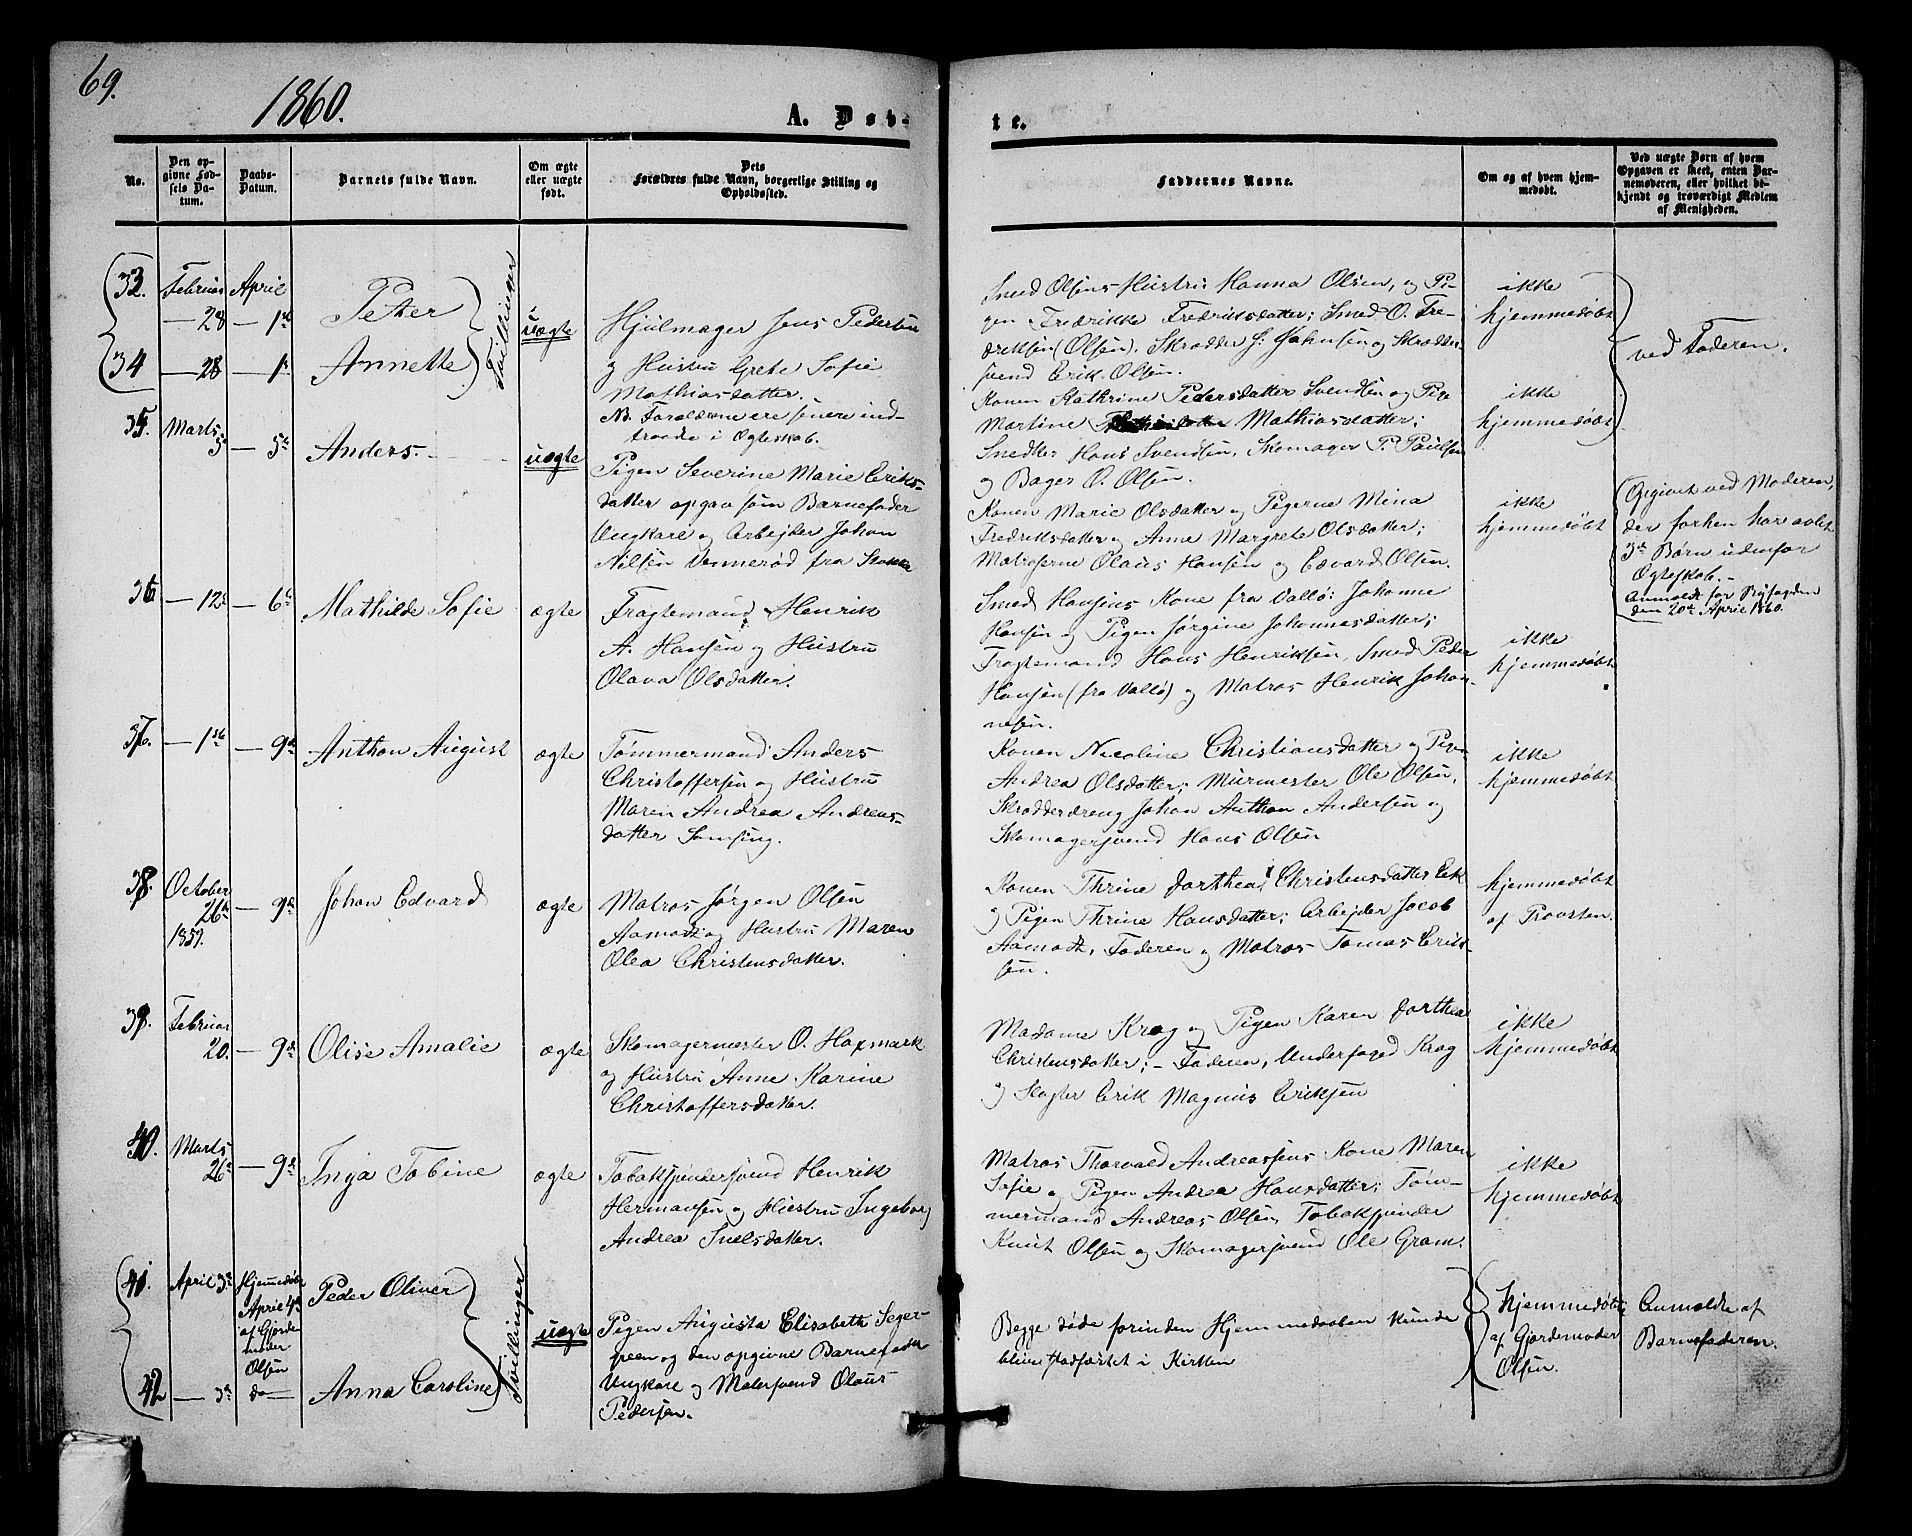 69.
1860.
A. Døb-
te.
No.
Den op-
givne Fød-
sels Da-
tum.
Daabs-
Datum.
Barnets fulde Navn.
Om ægte
eller uægte
født.
Dets
Forældres fulde Navn, borgerlige Stilling og
Opholdssted.
Faddernes Navne.
Om og af hvem hjem-
medøbt.
Ved uægte Børn af hvem
Opgaven er skeet, enten Bar-
nemoderen, eller hvilket be-
kjendt og troværdigt Medlem
af Menigheden.
33. Februar April
— 28 — 1st Peter
34 — 28 — 1st Annette
Tvillinger
uægte
Hjulmager Jens Pedersen
og Hustru Grete Sofie
Mathiasdatter.
NB. Forældrene ere senere ind-
traade i Ægteskab.
Smed Olsens Hustru Hanna Olsen, og Pi-
gen Fredrikke Fredriksdatter; Smed O. Fre-
driksen (Olsen), Skrædder H. Johnsen og Skrædder-
svend Erik Olsen.
ikke
hjemmedøbt
ved Faderen.
35. Marts
5 — 5te Anders
uægte
Pigen Severine Marie Eriks-
datter opgav som Barnefader
Ungkarl og Arbejder Johan
Nilsen Vennerød fra Stokke
Konen Kathrine Pedersdatter Svendsen og Pige
Martine Mathiasdatter;
Snedker Hans Svendsen, Skomager P. Paulsen
og Bager O. Olsen.
ikke
hjemmedøbt
Konen Marie Olsdatter og Pigerne Mina
Fredriksdatter og Anne Margrete Olsdatter;
Matroserne Olaus Hansen og Edvard Olsen.
ikke
hjemmedøbt
Opgivet ved Moderen,
der forhen har avlet
3de Børn udenfor
Ægteskab. —
Anmeldt for Fogden
den 20de April 1860.
36 — 12te — 6te Mathilde Sofie
ægte
Fragtemand Henrik
A. Hansen og Hustru
Olava Olsdatter.
Smed Hansens Kone fra Vallø: Johanne
Hansen og Pigen Jørgine Johannesdatter;
Fragtemand Hans Henriksen, Smed Peder
Hansen (fra Vallø) og Matros Henrik Johan-
nesen.
ikke
hjemmedøbt
37. — 1ste — 9de Anthon August
ægte
Tømmermand Anders
Christoffersen og Hustru
Maren Andrea Andreas-
datter Samsing.
Konen Nicoline Christiansdatter og Pigen
Andrea Olsdatter; Murmester Ole Olsen,
Skrædderdreng Johan Anthon Andersen og
Skomagersvend Hans Olsen
ikke
hjemmedøbt
38. October
26de — 9de Johan Edvard
1859.
ægte
Matros Jørgen Olsen
Aamodt og Hustru Maren
Olea Christensdatter.
Konen Thrine Dorthea Christensdatter Eek
og Pigen Thrine Hansdatter; Arbejder Jacob
Aamodt, Faderen og Matros Tomas Erik-
sen.
hjemmedøbt
af Provsten.
39. Februar
20. — 9de Olise Amalie
ægte
Skomagermester O. Haxmark
og Hustru Anne Karine
Christoffersdatter.
Madame Krag og Pigen Karen Dorthea
Christensdatter; — Faderen, Underfoged Krag
og Slagter Erik Magnus Eriksen
ikke
hjemmedøbt
40. Marts
26de — 9de Inga Tobine
ægte
Tobakspindersvend Henrik
Hermansen og Hustru Ingeborg
Andrea Snelsdatter.
Matros Thorvald Andreassens Kone Maren
Sofie og Pigen Andrea Hansdatter; Tøm-
mermand Andreas Olsen, Tobakspinder
Knut Olsen og Skomagersvend Ole Gram.
ikke
hjemmedøbt
41. April 3de Hjemmedøbt
April 4de
af Gjorde-
moder
Olsen
Peder Oliver
42 — 3de do — Anna Caroline
Tvillinger
uægte
Pigen Augusta Elisabeth Seger-
green og den opgivne Barnefader
Ungkarl og Malersvend Olaus
Pedersen.
Begge døde forinden Hjemmedaaben kunde
blive stadfæstet i Kirken
hjemmedøbte
af Gjordemoder
Olsen.
Anmeldte af
Barnefaderen.